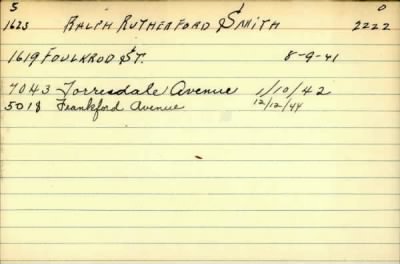 S S O
1623 RALPH RUTHERFORD SMITH 2222
1619 FOULKROD ST. 8-9-41
7043 Torresdale Avenue 1/10/42
5018 Frankford Avenue 12/12/44